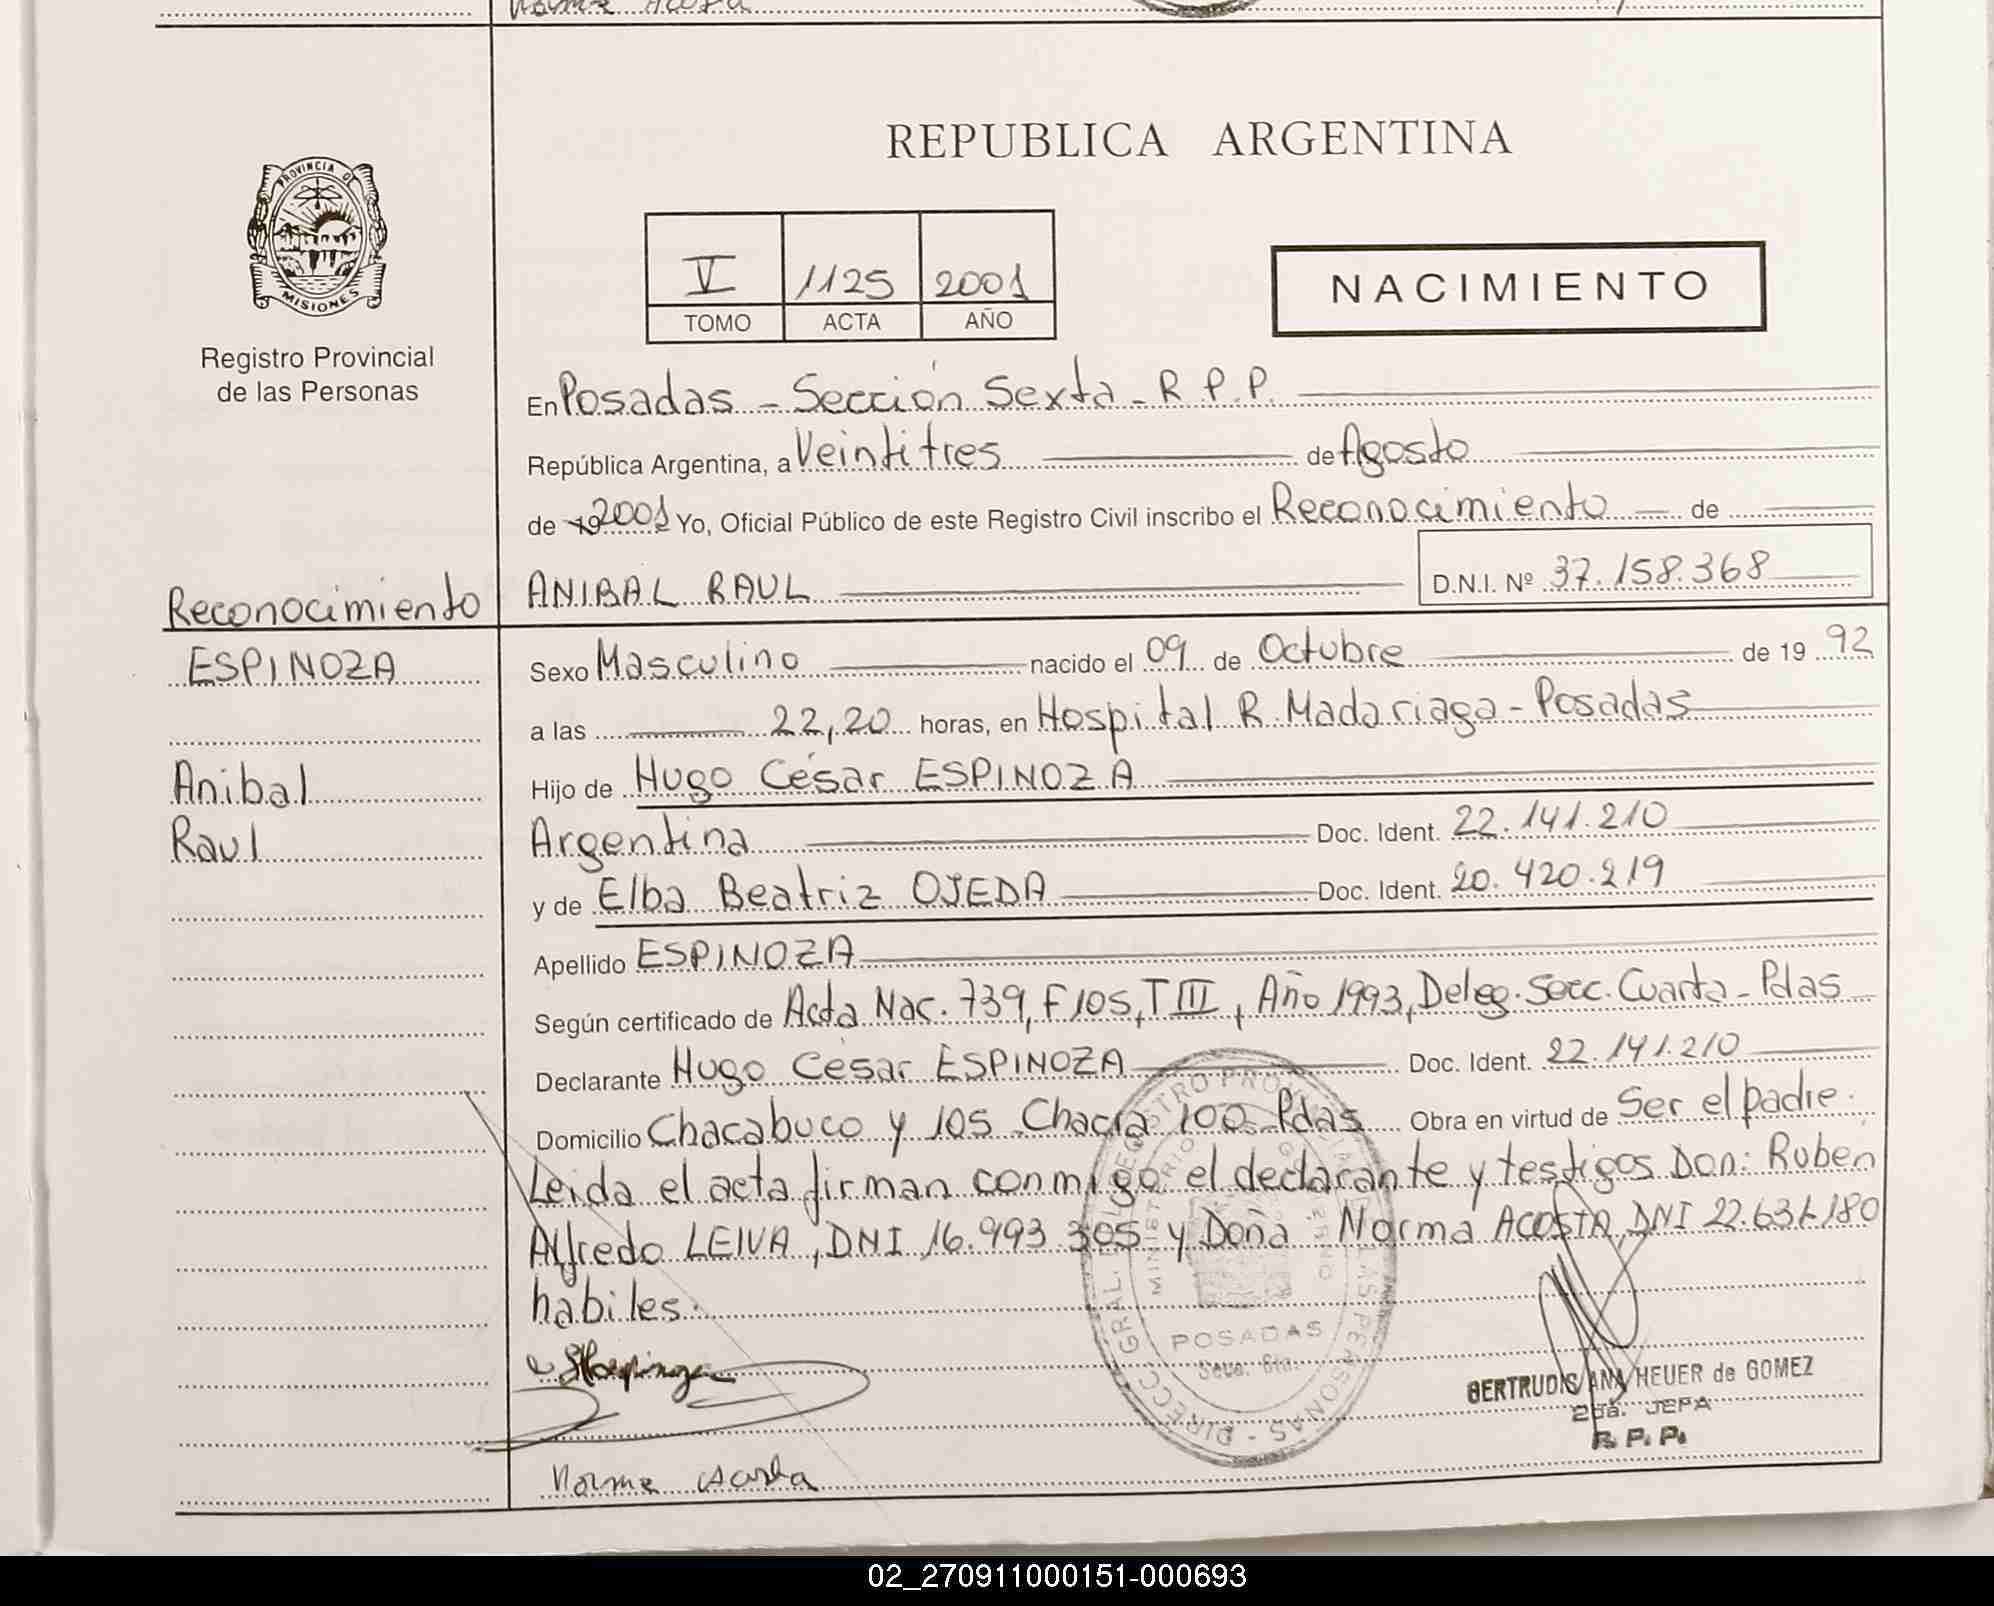 Norma Acosta
REPUBLICA ARGENTINA
PROVINCIA D
MISIONES
Registro Provincial
de las Personas
V 1125 2001
TOMO ACTA AÑO
NACIMIENTO
En Posadas - Sección Sexta - R P.P.
República Argentina, a Veintitres de Agosto
de 19 2001 Yo, Oficial Público de este Registro Civil inscribo el Reconocimiento de
Reconocimiento
ANIBAL RAUL D.N.I. Nº 37.158.368
ESPINOZA
Sexo Masculino nacido el 09 de Octubre de 19 92
a las 22,20 horas, en Hospital R. Madariaga - Posadas
Anibal
Hijo de Hugo César ESPINOZA
Raul
Argentina Doc. Ident. 22.141.210
y de Elba Beatriz OJEDA Doc. Ident. 20.420.219
Apellido ESPINOZA
Según certificado de Acta Nac. 739, F 105, T III, Año 1993, Deleg. Secc. Cuarta - Pdas
Declarante Hugo César ESPINOZA Doc. Ident. 22.141.210
Domicilio Chacabuco y 105 Chacra 100 Pdas Obra en virtud de Ser el padre.
Leida el acta firman conmigo el declarante y testigos Don: Ruben
Alfredo LEIVA, DNI 16.993 305 y Doña Norma ACOSTA, DNI 22.631.180
habiles.
POSADAS
GERTRUDIS ANA HEUER de GOMEZ
2da. JEFA
R. P. P.
Norma Acosta
02_270911000151-000693